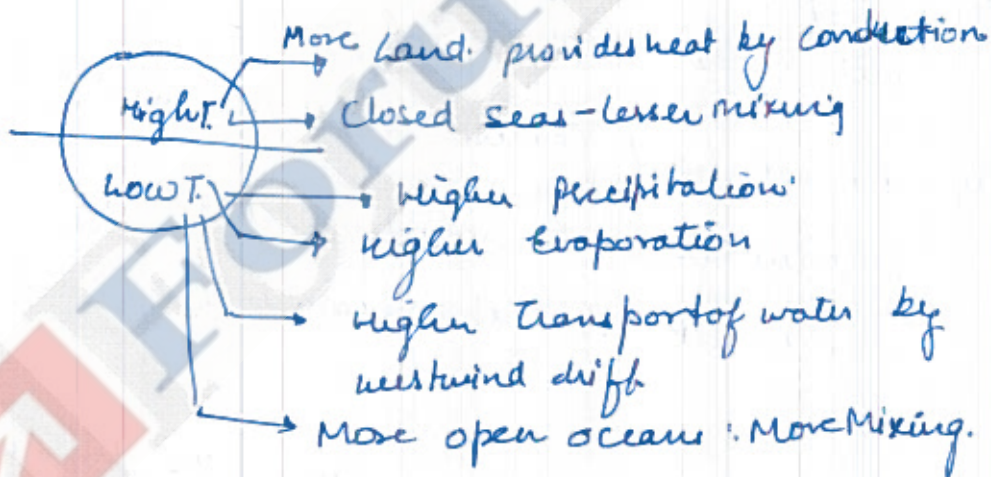 More Land. provides heat by conduction
High T.
Closed seas - lesser mixing
Low T.
Higher Percipitation
Higher Evaporation
Higher Transport of water by
westwind drift
More open oceans : More Mixing.
Foru